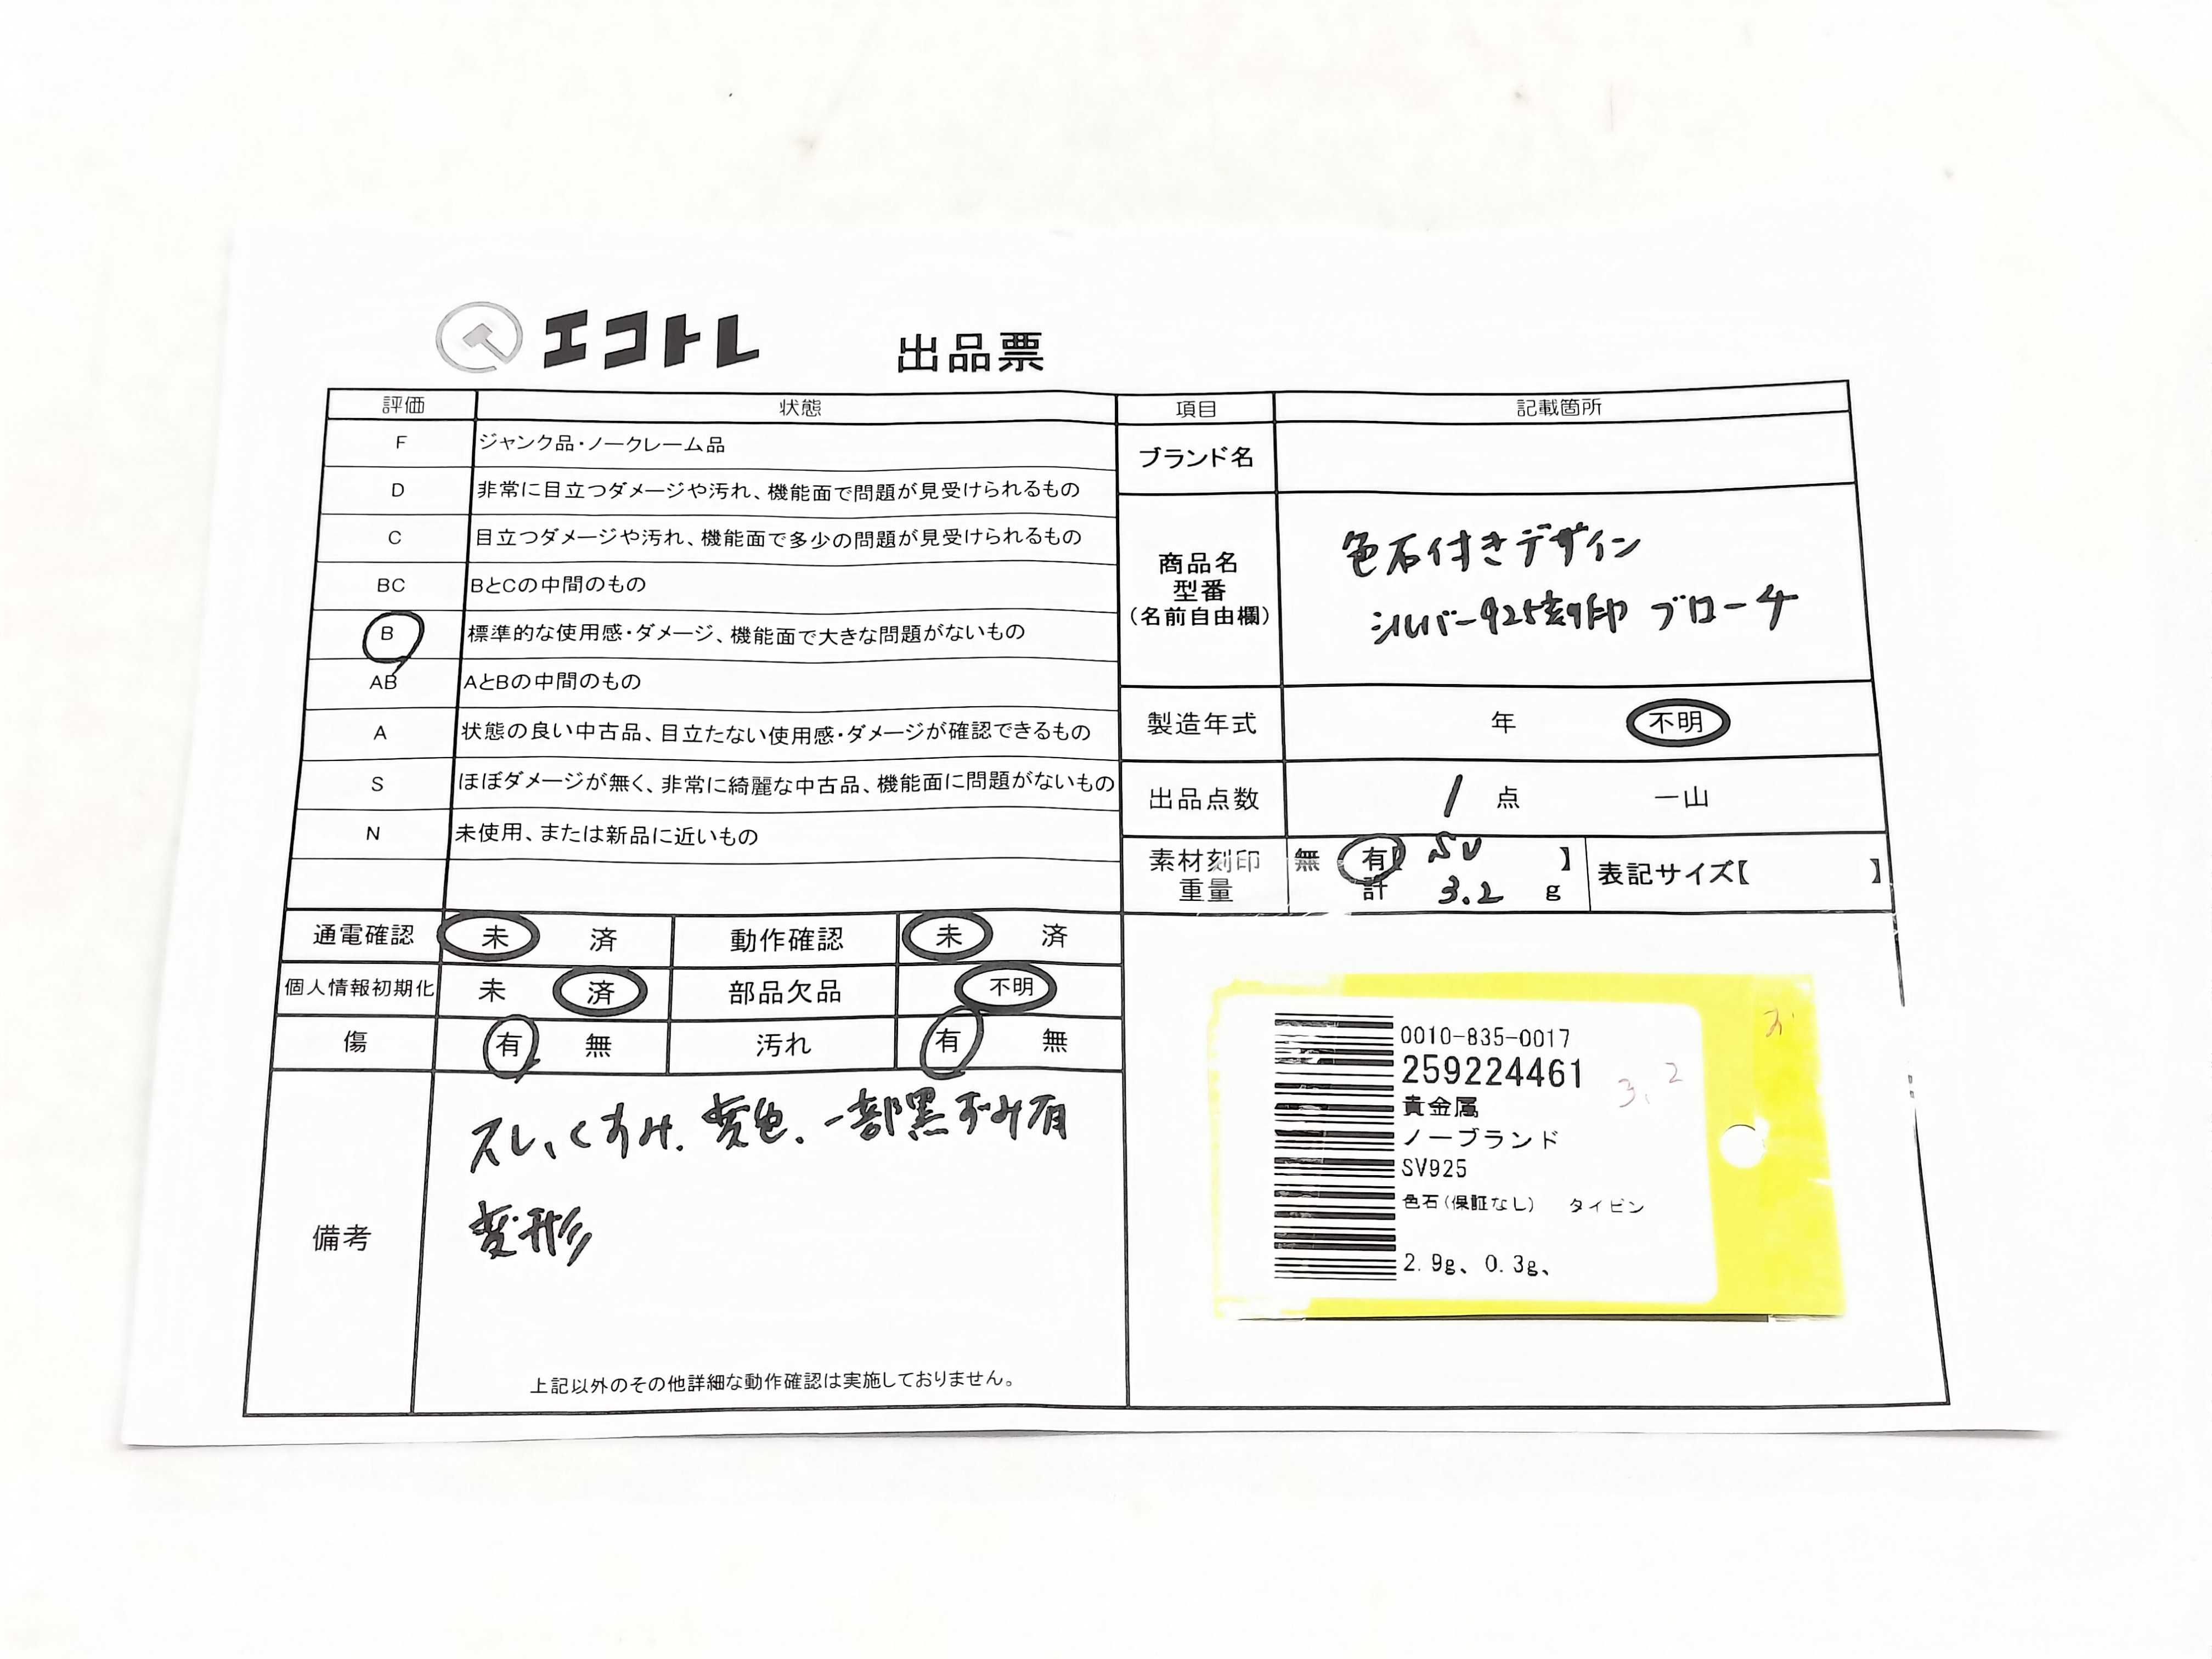 エコトレ 出品票
評価 状態
F ジャンク品・ノークレーム品
D 非常に目立つダメージや汚れ、機能面で問題が見受けられるもの
C 目立つダメージや汚れ、機能面で多少の問題が見受けられるもの
BC BとCの中間のもの
B 標準的な使用感・ダメージ、機能面で大きな問題がないもの
AB AとBの中間のもの
A 状態の良い中古品、目立たない使用感・ダメージが確認できるもの
S ほぼダメージが無く、非常に綺麗な中古品、機能面に問題がないもの
N 未使用、または新品に近いもの
通電確認 未 済 動作確認 未 済
個人情報初期化 未 済 部品欠品 不明
傷 有 無 汚れ 有 無
備考
スレ、くすみ、変色、一部黒ずみ有
変形
上記以外のその他詳細な動作確認は実施しておりません。
項目 記載箇所
ブランド名
商品名
型番
(名前自由欄)
色石付きデザイン
シルバー925刻印 ブローチ
製造年式 年 不明
出品点数 1 点 一山
素材刻印 無 有【 SV 】
重量 計 3.2 g
表記サイズ【 】
0010-835-0017
259224461
3.2
貴金属
ノーブランド
SV925
色石(保証なし) タイピン
2.9g、0.3g、